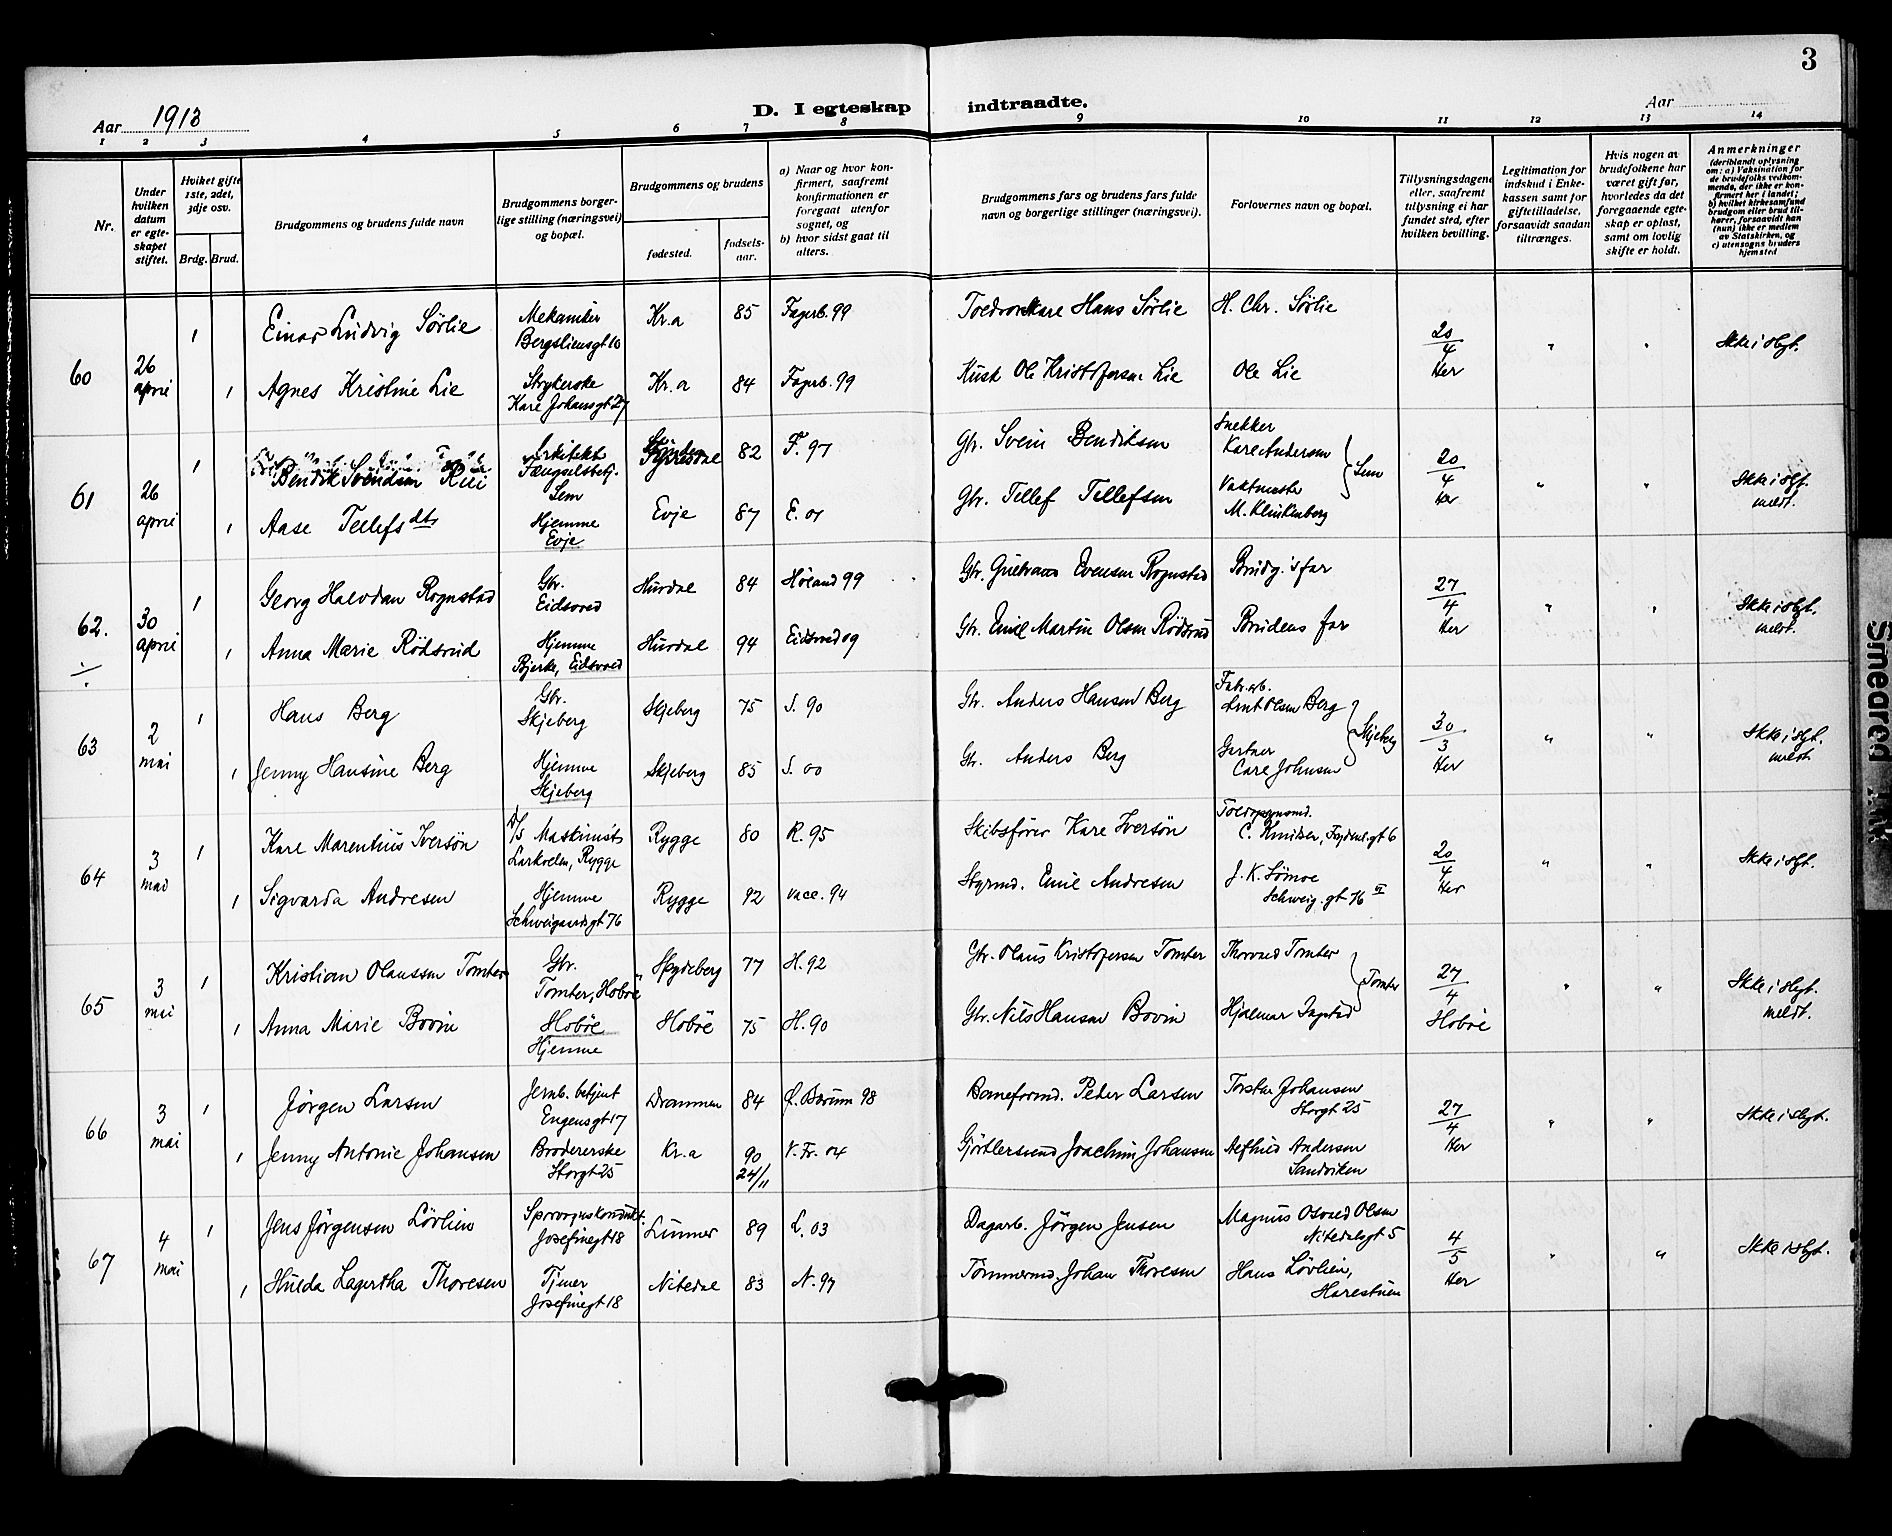 3
Aar 1913
D. I egteskap indtraadte.
Aar
1 2 3 4 5 6 7 8 9 10 11 12 13 14
Nr.
Under hvilken datum er egteskapet stiftet.
Hviket gifte 1ste, 2det, 3dje osv.
Brdg. Brud.
Brudgommens og brudens fulde navn
Brudgommens borgerlige stilling (næringsvei) og bopæl.
Brudgommens og brudens
fødested.
fødselsaar.
a) Naar og hvor konfirmert, saafremt konfirmationen er foregaat utenfor sognet, og
b) hvor sidst gaat til alters.
Brudgommens fars og brudens fars fulde navn og borgerlige stillinger (næringsvei).
Forlovernes navn og bopæl.
Tillysningsdagene eller, saafremt tillysning ei har fundet sted, efter hvilken bevilling.
Legitimation for indskud i Enkekassen samt for giftetilladelse, forsaavidt saadan tiltrænges.
Hvis nogen av brudefolkene har været gift før, hvorledes da det foregaaende egteskap er opløst, samt om lovlig skifte er holdt.
Anmerkninger
(deriblandt oplysning om: a) Vaksination for de brudefolks vedkommende, der ikke er konfirmert her i landet;
b) hvilket kirkesamfund brudgom eller brud tilhører, forsaavidt han (hun) ikke er medlem av Statskirken, og
c) utensogns bruders hjemsted
60 26 april
1 Einar Ludvig Sørlie Mekaniker Bergsliensgt 10 Kr.a 85 Fagerb. 99 Hans Sørlie H. Chr. Sørlie 20/4 Her " " Ikke i slgt.
1 Agnes Kristine Lie Strykerske Karl Johansgt 27 Kr.a 84 Fagerb. 99 Kusk Ole Kristofersen Lie Ole Lie
61 26 april
1 Bendik Svendsen Arkitekt Fængselsbetj. Sem Fyresdal 82 F. 97 Gbr. Svein Bendiksen Snekker Karl Andersen Sem 20/4 Her " " Ikke i slgt. meldt.
1 Aase Tellefsdtr Hjemme Evje Evje 87 E. 01 Gbr. Tellef Tellefsen Vaktmester M. Klinkenberg
62. 30 april
1 Georg Halvdan Rognstad Gbr. Eidsvold Hurdal 84 Høland 99 Gbr. Gulbrand Evensen Rognstad Brudg.'s far 27/4 Her " " Ikke i slgt. meldt.
1 Anna Marie Rödsrud Hjemme Bjerke, Eidsvold Hurdal 94 Eidsvold 09 Gbr. Emil Martin Olsen Rödsrud Brudens far
63 2 mai
1 Hans Berg Gbr. Skjeberg Skjeberg 75 S. 90 Gbr. Anders Hansen Berg Fabr.arb. Olsen Berg Skjeberg 30/3 Her " " Ikke i slgt. meldt
1 Jenny Hansine Berg Hjemme Skjeberg Skjeberg 85 S. 00 Gbr. Anders Berg Gartner Carl Johnsen
64 3 mai
1 Karl Marenthius Iversön D/S Maskinist Larkollen, Rygge Rygge 80 R. 95 Skibsfører Karl Iversön C. Knudsen, 20/4 Her " " Ikke i slgt.
1 Sigvarda Andresen Hjemme Schweigaardsgt 76 Rygge 92 vacc. 94 Styrmd. Emil Andresen J. K. Sömoe Schweig.gt 76 II
65 3 mai
1 Kristian Olaussen Tomter Gbr. Tomter, Hoböl Spydeberg 77 H. 92 Gbr. Olaus Kristofersen Tomter Thorvald Tomter Tomter 27/4 Hoböl " " Ikke i slgt. meldt.
1 Anna Marie Bovin Hoböl Hjemme Hoböl 75 H. 90 Gbr. Nils Hansen Bovin Hjalmar
66 3 mai
1 Jörgen Larsen Jernb. betjent Engensgt 17 Drammen 84 Ø. Bærum 98 Baneformd. Peder Larsen Torstar Johansen Storgt 25 27/4 Her " " Ikke i slgt.
1 Jenny Antonie Johansen Brodererske Storgt 25 Kr.a 90 24/11 V. Fr. 04 Gjörtlersvend Joachim Johansen Alfhild Andersen Sandviken
67 4 mai
1 Jens Jörgensen Lövlien Sporvognskondukt. Josefinegt 18 Lunner 89 L. 03 Dagarb. Jörgen Jensen Magnus Osvald Olsen Nitedalsgt 5 4/5 Her " " Ikke i slgt.
1 Hulda Lagertha Thoresen Tjener Josefinegt 18 Nitedal 83 N. 97 Tömmermd. Johan Thoresen Hans Lövlien, Harestuen
Smeared Ink